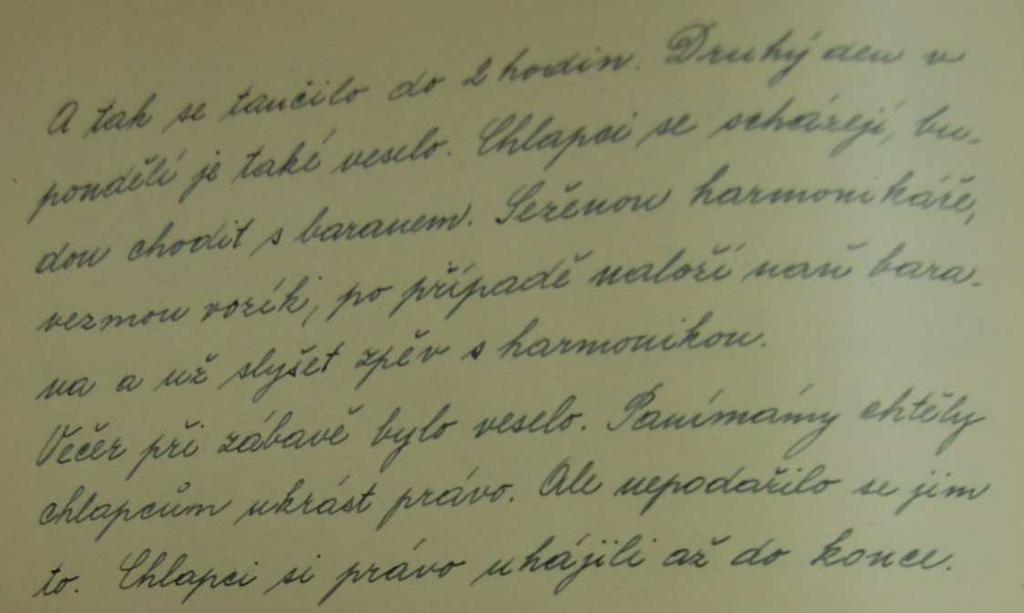 A tak se tančilo do 2 hodin. Druhý den v
pondělí je také veselo. Chlapci se scházejí, bu-
dou chodit s baranem. Seženou harmonikáře,
vezmou vozík, po případě naloží naň bara-
na a už slyšet zpěv s harmonikou.
Večer při zábavě bylo veselo. Panímámy chtěly
chlapcům ukrást právo. Ale nepodařilo se jim
to. Chlapci si právo uhájili až do konce.